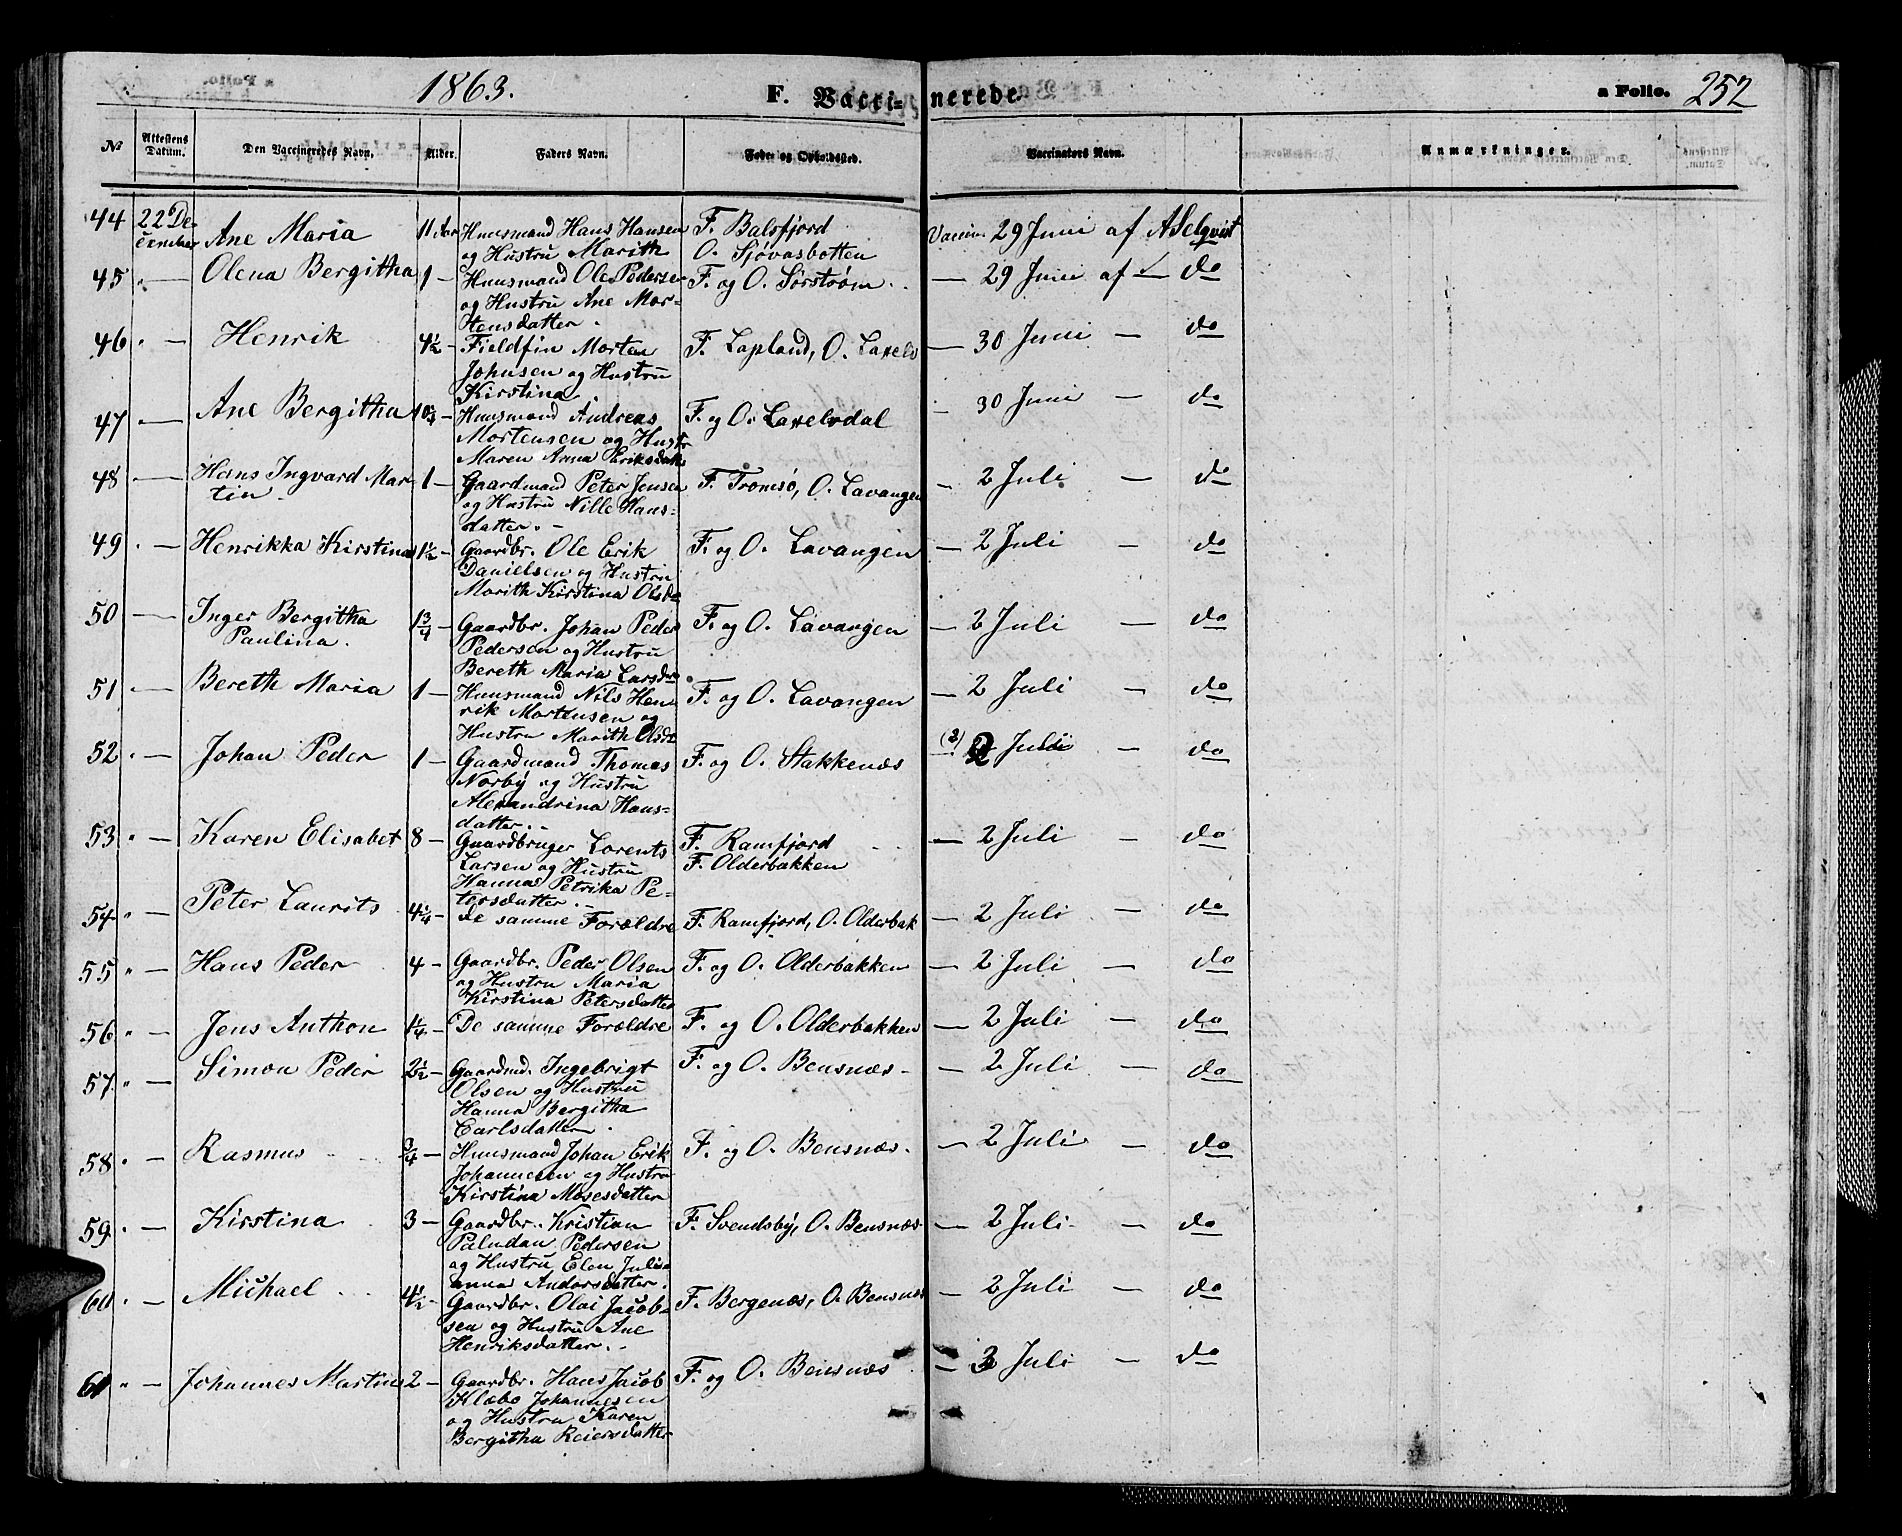 1863. F. Vacci- nerede. a Folio. 252
No Attestens Datum. Den Vaccineredes Navn. Alder. Faders Navn. Føde og Opholdssted. Vaccinators Navn. Anmærkninger.
44 22 De- Ane Maria 11 Aar Huusmand Hans Hansen F. Balsfjord Vaccin. 29 Juni af A Selqvist
cember og Hustru Marith O. Sjøvasbotten
45 " — Olena Bergitha 1 — Huusmand Ole Pedersen F. og O. Sørstrøm — 29 Juni af — do
og Hustru Ane Mor-
tensdatter.
46 " — Henrik 4½ — Fieldfin Morten F. Lapland, O. Laxelv — 30 Juni — do
Johnsen og Hustru
Kirstina
47 — Ane Bergitha Huusmand Andreas F. og O. Laxelvdal — 30 Juni — do
Mortensen og Hustr
Maren Anna Eriksdat
48 — Hans Ingvard Mar- 1 — Gaardmand Peter Jensen F. Tromsø, O. Lavangen — 2 Juli — do
tin og Hustru Nille Hans-
datter. -
49 " — Henrikka Kirstina 1½ — Gaardbr. Ole Erik F. og O. Lavangen — 2 Juli — do
Danielsen og Hustru
Marith Kirstina Olsdr
50 — Inger Bergitha 1¾ — Gaardbr. Johan Peder F. og O. Lavangen — 2 Juli — do
Paulina. Pedersen og Hustru
Bereth Maria Larsdr
51 " — Bereth Maria 1 — Huusmand Nils Hen- F. og O. Lavangen — 2 Juli — do
rik Mortensen og
Hustru Marith Olsdr
52 " — Johan Peder 1 — Gaardmand Thomas F. og O. Stakkenæs (2) 2 Juli — do
Norby og Hustru
Alexandrina Hans-
datter. -
53 " — Karen Elisabet 8 — Gaardbruger Lorents F. Ramfjord — 2 Juli — do
Larsen og Hustru F. Olderbakken
Hanna Petrika Pe-
tersdatter. -
54 " — Peter Laurits 4¼ — De samme Forældre F. Ramfjord, O. Olderbak — 2 Juli — do
55 " — Hans Peder 4 — Gaardbr. Peder Olsen F. og O. Olderbakken — 2 Juli — do
og Hustru Maria
Kirstina Petersdatter
56 " — Jens Anthon 1¼ — De samme Forældre F. og O. Olderbakken — 2 Juli — do
57 " — Simon Peder 2½ — Gaardmd. Ingebrigt F. og O. Bensnæs - — 2 Juli — do
Olsen og Hustru
Hanna Bergitha
Carlsdatter.
58 " — Rasmus ¾ — Huusmand Johan Erik F. og O. Bensnæs. — 2 Juli — do
Johannesen og Hustru
Kirstina Mosesdatter
59 " — Kirstina 3 — Gaardbr. Kristian F. Svendsby, O. Bensnæs — 2 Juli — do
Paludan Pedersen
og Hustru Elen Juli-
anna Andersdatter.
60 " — Michael 4½ — Gaardbr. Olai Jacob- F. Bergenæs, O. Bensnæs — 2 Juli — do
sen og Hustru Ane
Henriksdatter.
61 " — Johannes Martins 2 — Gaardbr. Hans Jacob F. og O. Bensnæs — 3 Juli — do
Klæbo Johannesen
og Hustru Karen
Bergitha Reiersdatter